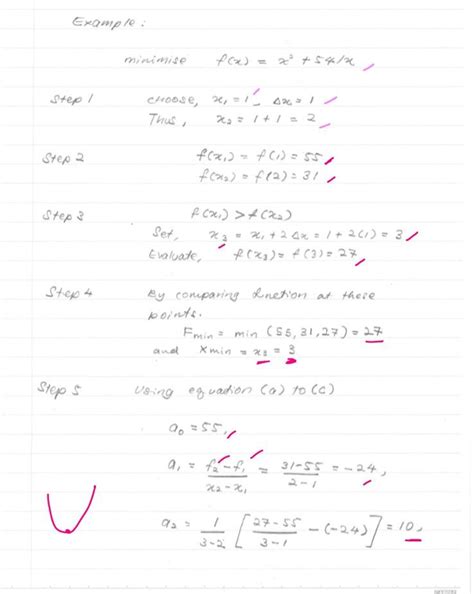 Example:
minimise f(x) = x² + 54/x
Step 1 choose, x₁ = 1, Δx = 1
Thus, x₂ = 1 + 1 = 2
Step 2 f(x₁) = f(1) = 55
f(x₂) = f(2) = 31
Step 3 f(x₁) > f(x₂)
Set, x₃ = x₁ + 2Δx = 1 + 2(1) = 3
Evaluate, f(x₃) = f(3) = 27
Step 4 By comparing function at these
points.
Fmin = min (55, 31, 27) = 27
and xmin = x₃ = 3
Step 5 Using equation (a) to (c)
a₀ = 55,
a₁ = (f₂ - f₁)/(x₂ - x₁) = (31 - 55)/(2 - 1) = -24,
a₂ = 1/(3 - 2) [(27 - 55)/(3 - 1) - (-24)] = 10,